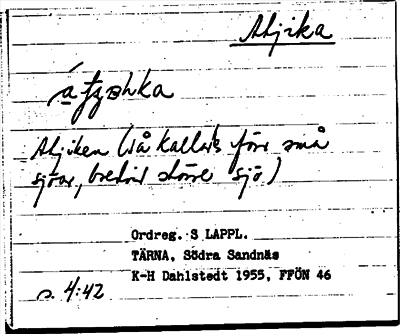 Atjika
Atjiken (så kallas före små
sjöar, bredvid större sjö)
Ordreg. S LAPPL.
TÄRNA, Södra Sandnäs
K-H Dahlstedt 1955, FFÖN 46
s. 4:42